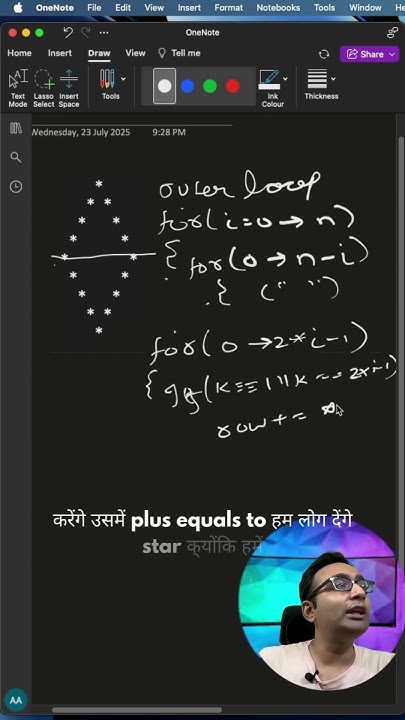 OneNote Edit View Insert Format Notebooks Tools Window He
OneNote
Home Insert Draw View Tell me
Share
Text Mode
Lasso Select
Insert Space
Tools
Ink Colour
Thickness
Wednesday, 23 July 2025 9:28 PM
outer loop
for(i=0→n)
{ for(0→n-i)
{ (" ")
for(0→2*i-1)
{ if(K==1||K==2*i-1)
row+= *
करेंगे उसमें plus equals to हम लोग देंगे
star क्योंकि हमें
AA